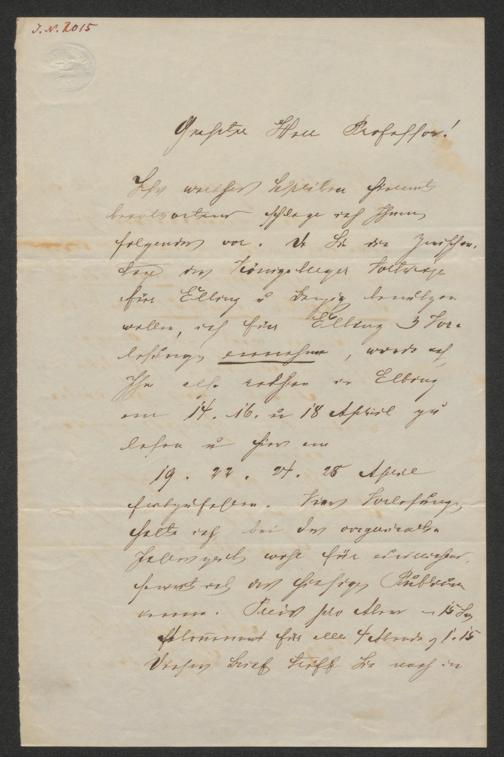 J.N. 2015
Geehrter Herr Professor!
Ihr werthes Schreiben hiermit
beantwortend schlage ich Ihnen
folgendes vor. Da Sie die Zwischen-
tage der Königsberger Vorträge
für Elbing u Danzig benutzen
wollen, ich für Elbing 3 Vor-
lesungen annehme, würde ich
Ihn also rathen in Elbing
am 14. 16. u 18 April zu
lesen u hier am
19. 22. 24. 28 April
fortzufahren. Vier Vorlesungen
halte ich bei der vorgerückten
Jahreszeit wohl für ausreichend,
soweit ich das hiesige Publicum
kenne. Preis pro Abend 15 Sg
Abonnement für alle 4 Abende 1.15
Dieser Brief trifft Sie noch in